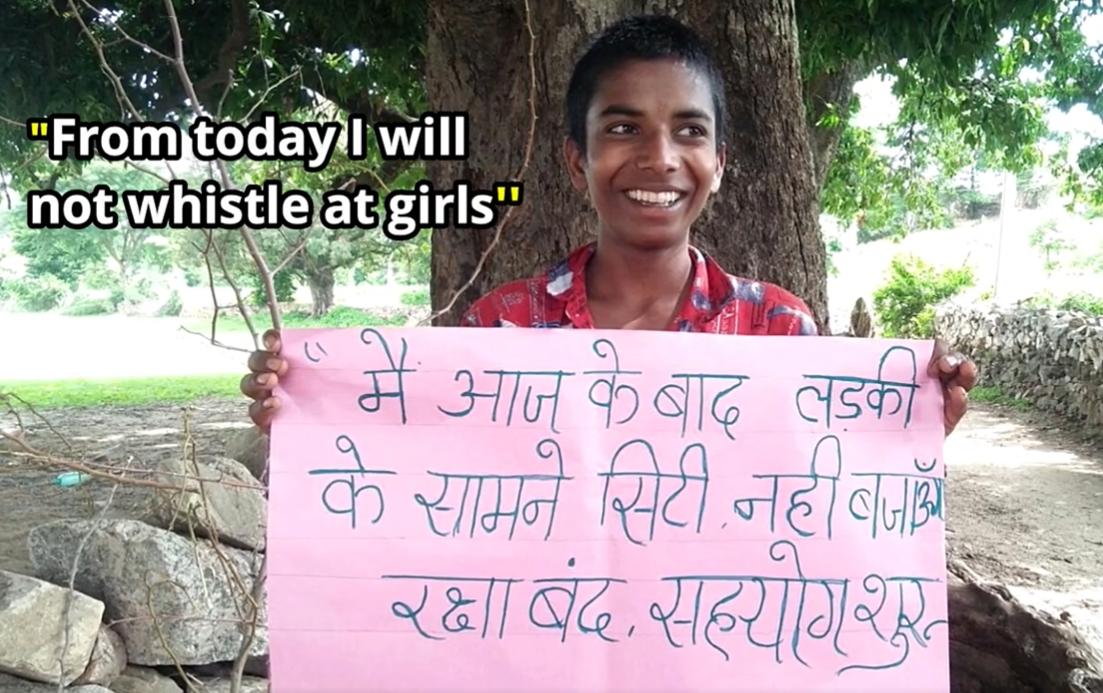 "From today I will
not whistle at girls"
" मैं आज के बाद लड़की
के सामने सिटी नही बजाऊँ
रक्षा बंद, सहयोग शुरू